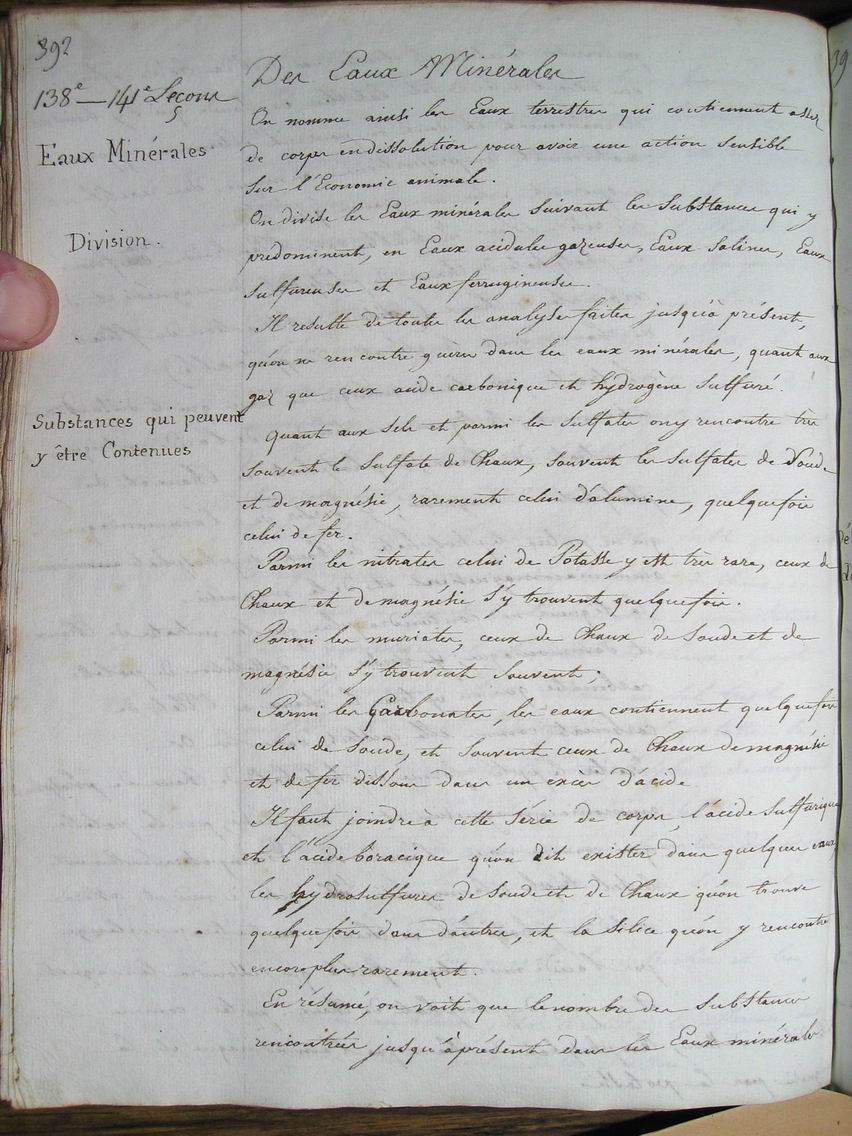 392
138e — 141e Leçons
Eaux Minérales
Division.
Substances qui peuvent
y être Contenues
Des Eaux Minérales
On nomme ainsi les Eaux terrestres qui contiennent assez
de corps en dissolution pour avoir une action sensible
sur l'Economie animale.
On divise les Eaux minérales suivant les substances qui y
prédominent, en Eaux acidules gazeuses, Eaux salines, Eaux
sulfureuses et Eaux ferrugineuses.
Il resulte de toutes les analyses faites jusqu'à présent,
qu'on ne rencontre guère dans les eaux minérales, quant aux
gaz que ceux acide carbonique et hydrogène sulfuré.
Quant aux sels et parmi les Sulfates on y rencontre très
souvent le Sulfate de Chaux, souvent les sulfates de Soude
et de magnésie, rarement celui d'alumine, quelquefois
celui de fer.
Parmi les nitrates celui de Potasse y est très rare, ceux de
Chaux et de magnésie s'y trouvent quelquefois.
Parmi les muriates, ceux de Chaux de Soude et de
magnésie s'y trouvent souvent;
Parmi les Carbonates, les eaux contiennent quelquefois
celui de Soude, et souvent ceux de Chaux de magnésie
et de fer dissous dans un excès d'acide
Il faut joindre à cette série de corps l'acide sulfurique
et l'acide boracique qu'on dit exister dans quelques eaux,
les hydrosulfures de Soude et de Chaux qu'on trouve
quelquefois dans d'autres, et la Silice qu'on y rencontre
encore plus rarement.
En résumé, on voit que le nombre des substances
rencontrées jusqu'à présent dans les Eaux minérales